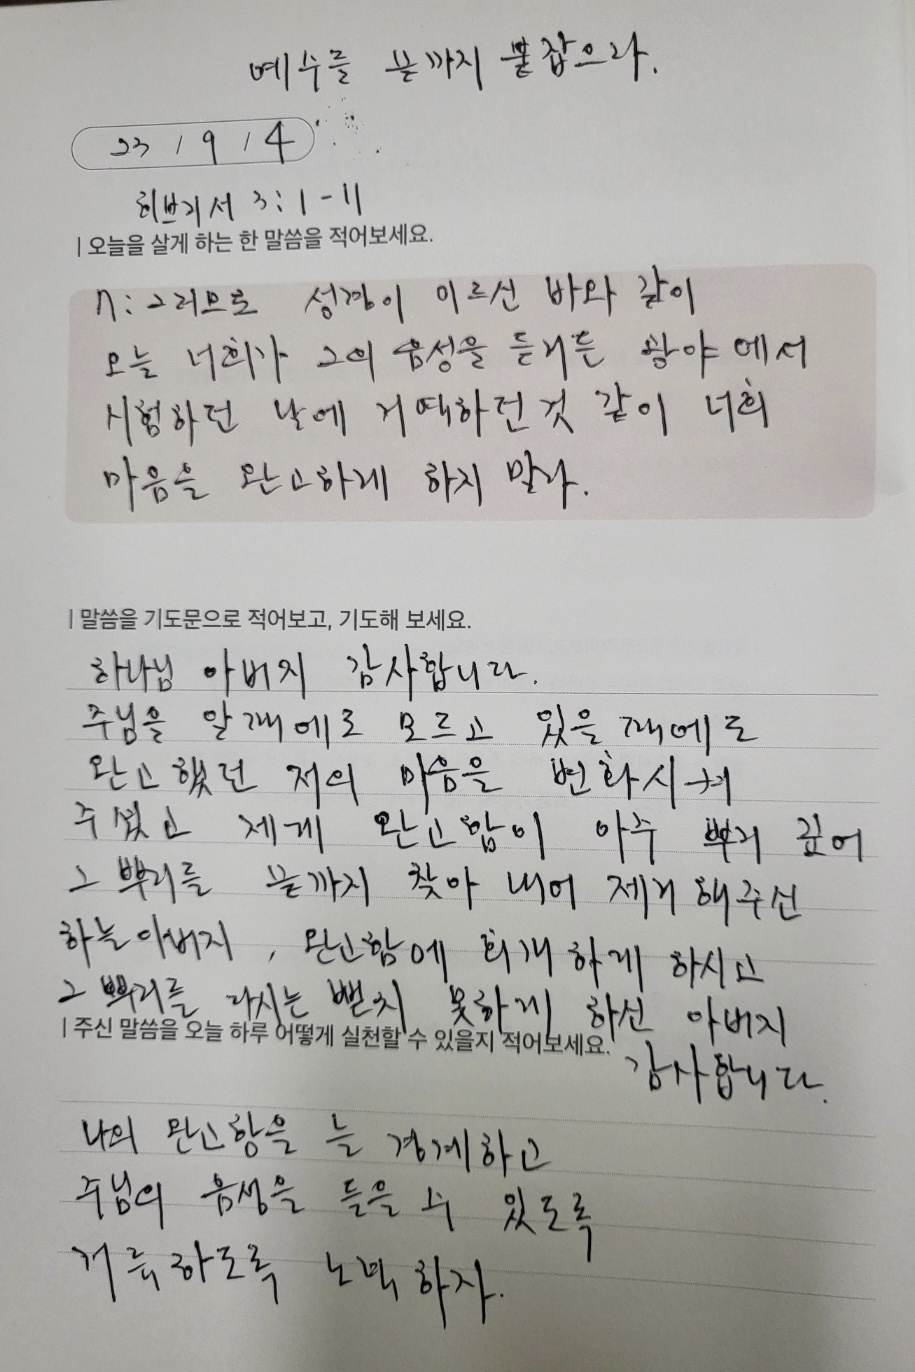 예수를 끝까지 붙잡으라.
23 / 9 / 4
히브리서 3:1-11
| 오늘을 살게 하는 한 말씀을 적어보세요.
7: 그러므로 성경이 이르신 바와 같이
오늘 너희가 그의 음성을 듣거든 광야에서
시험하던 날에 거역하던것 같이 너희
마음을 완고하게 하지 말라.
| 말씀을 기도문으로 적어보고, 기도해 보세요.
하나님 아버지 감사합니다.
주님을 알 때에도 모르고 있을 때에도
완고했던 저의 마음을 변화시켜
주셨고 제게 완고함이 아주 뿌리 깊어
그 뿌리를 끝까지 찾아 내어 제거 해주신
하늘아버지, 완고함에 회개하게 하시고
그 뿌리를 다시는 뻗치 못하게 하신 아버지
| 주신 말씀을 오늘 하루 어떻게 실천할 수 있을지 적어보세요.
감사합니다.
나의 완고함을 늘 경계하고
주님의 음성을 들을 수 있도록
거룩하도록 노력하자.